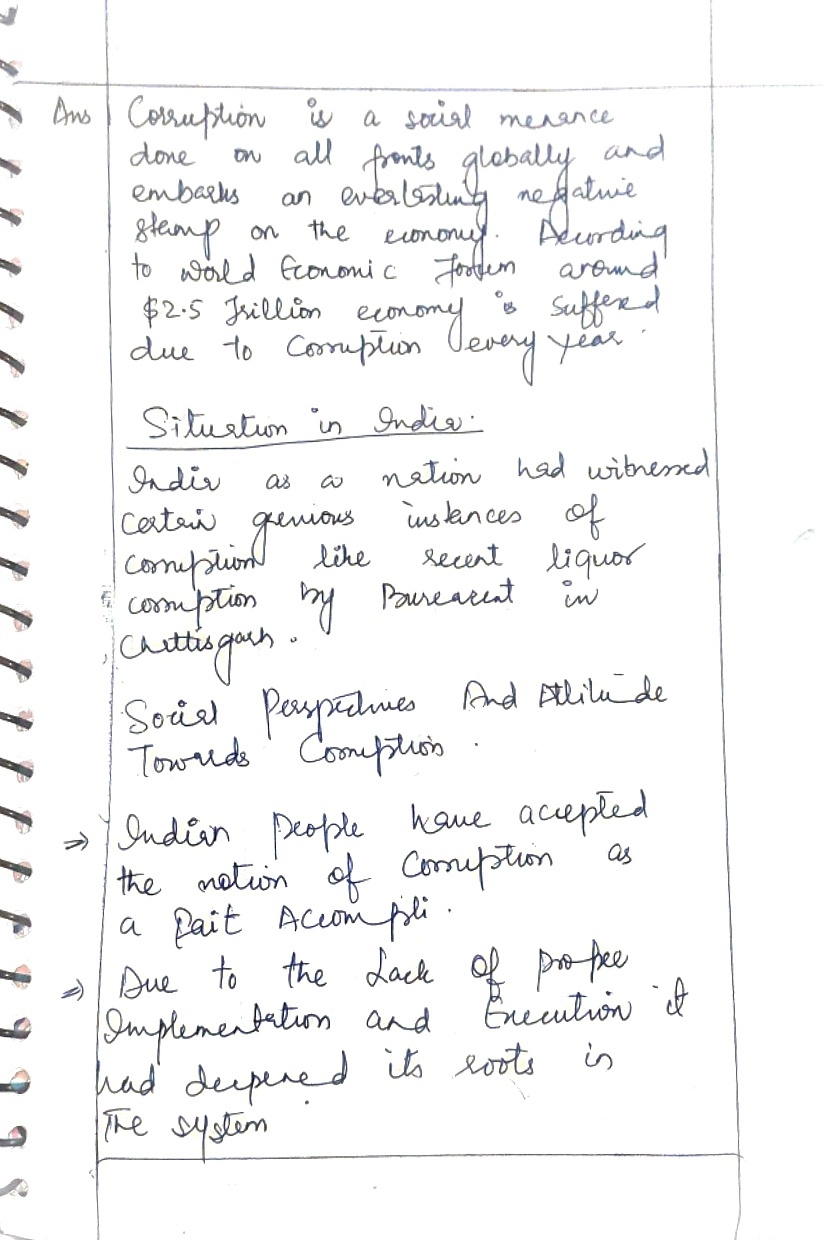 Ans
Corruption is a social menance
done on all fronts globally and
embarks an everlasting negative
stamp on the economy. According
to World Economic Forum around
$2.5 Trillion economy is suffered
due to Corruption every year.
Situation in India.
India as a nation had witnessed
certain genious instances of
corruption like recent liquor
corruption by Bureacrat in
Chattisgarh.
Social Perspectives And Attitude
Towards Corruption.
⇒ Indian people have accepted
the notion of Corruption as
a Fait Accompli.
⇒ Due to the Lack of proper
Implementation and Execution it
had deepened its roots in
The system